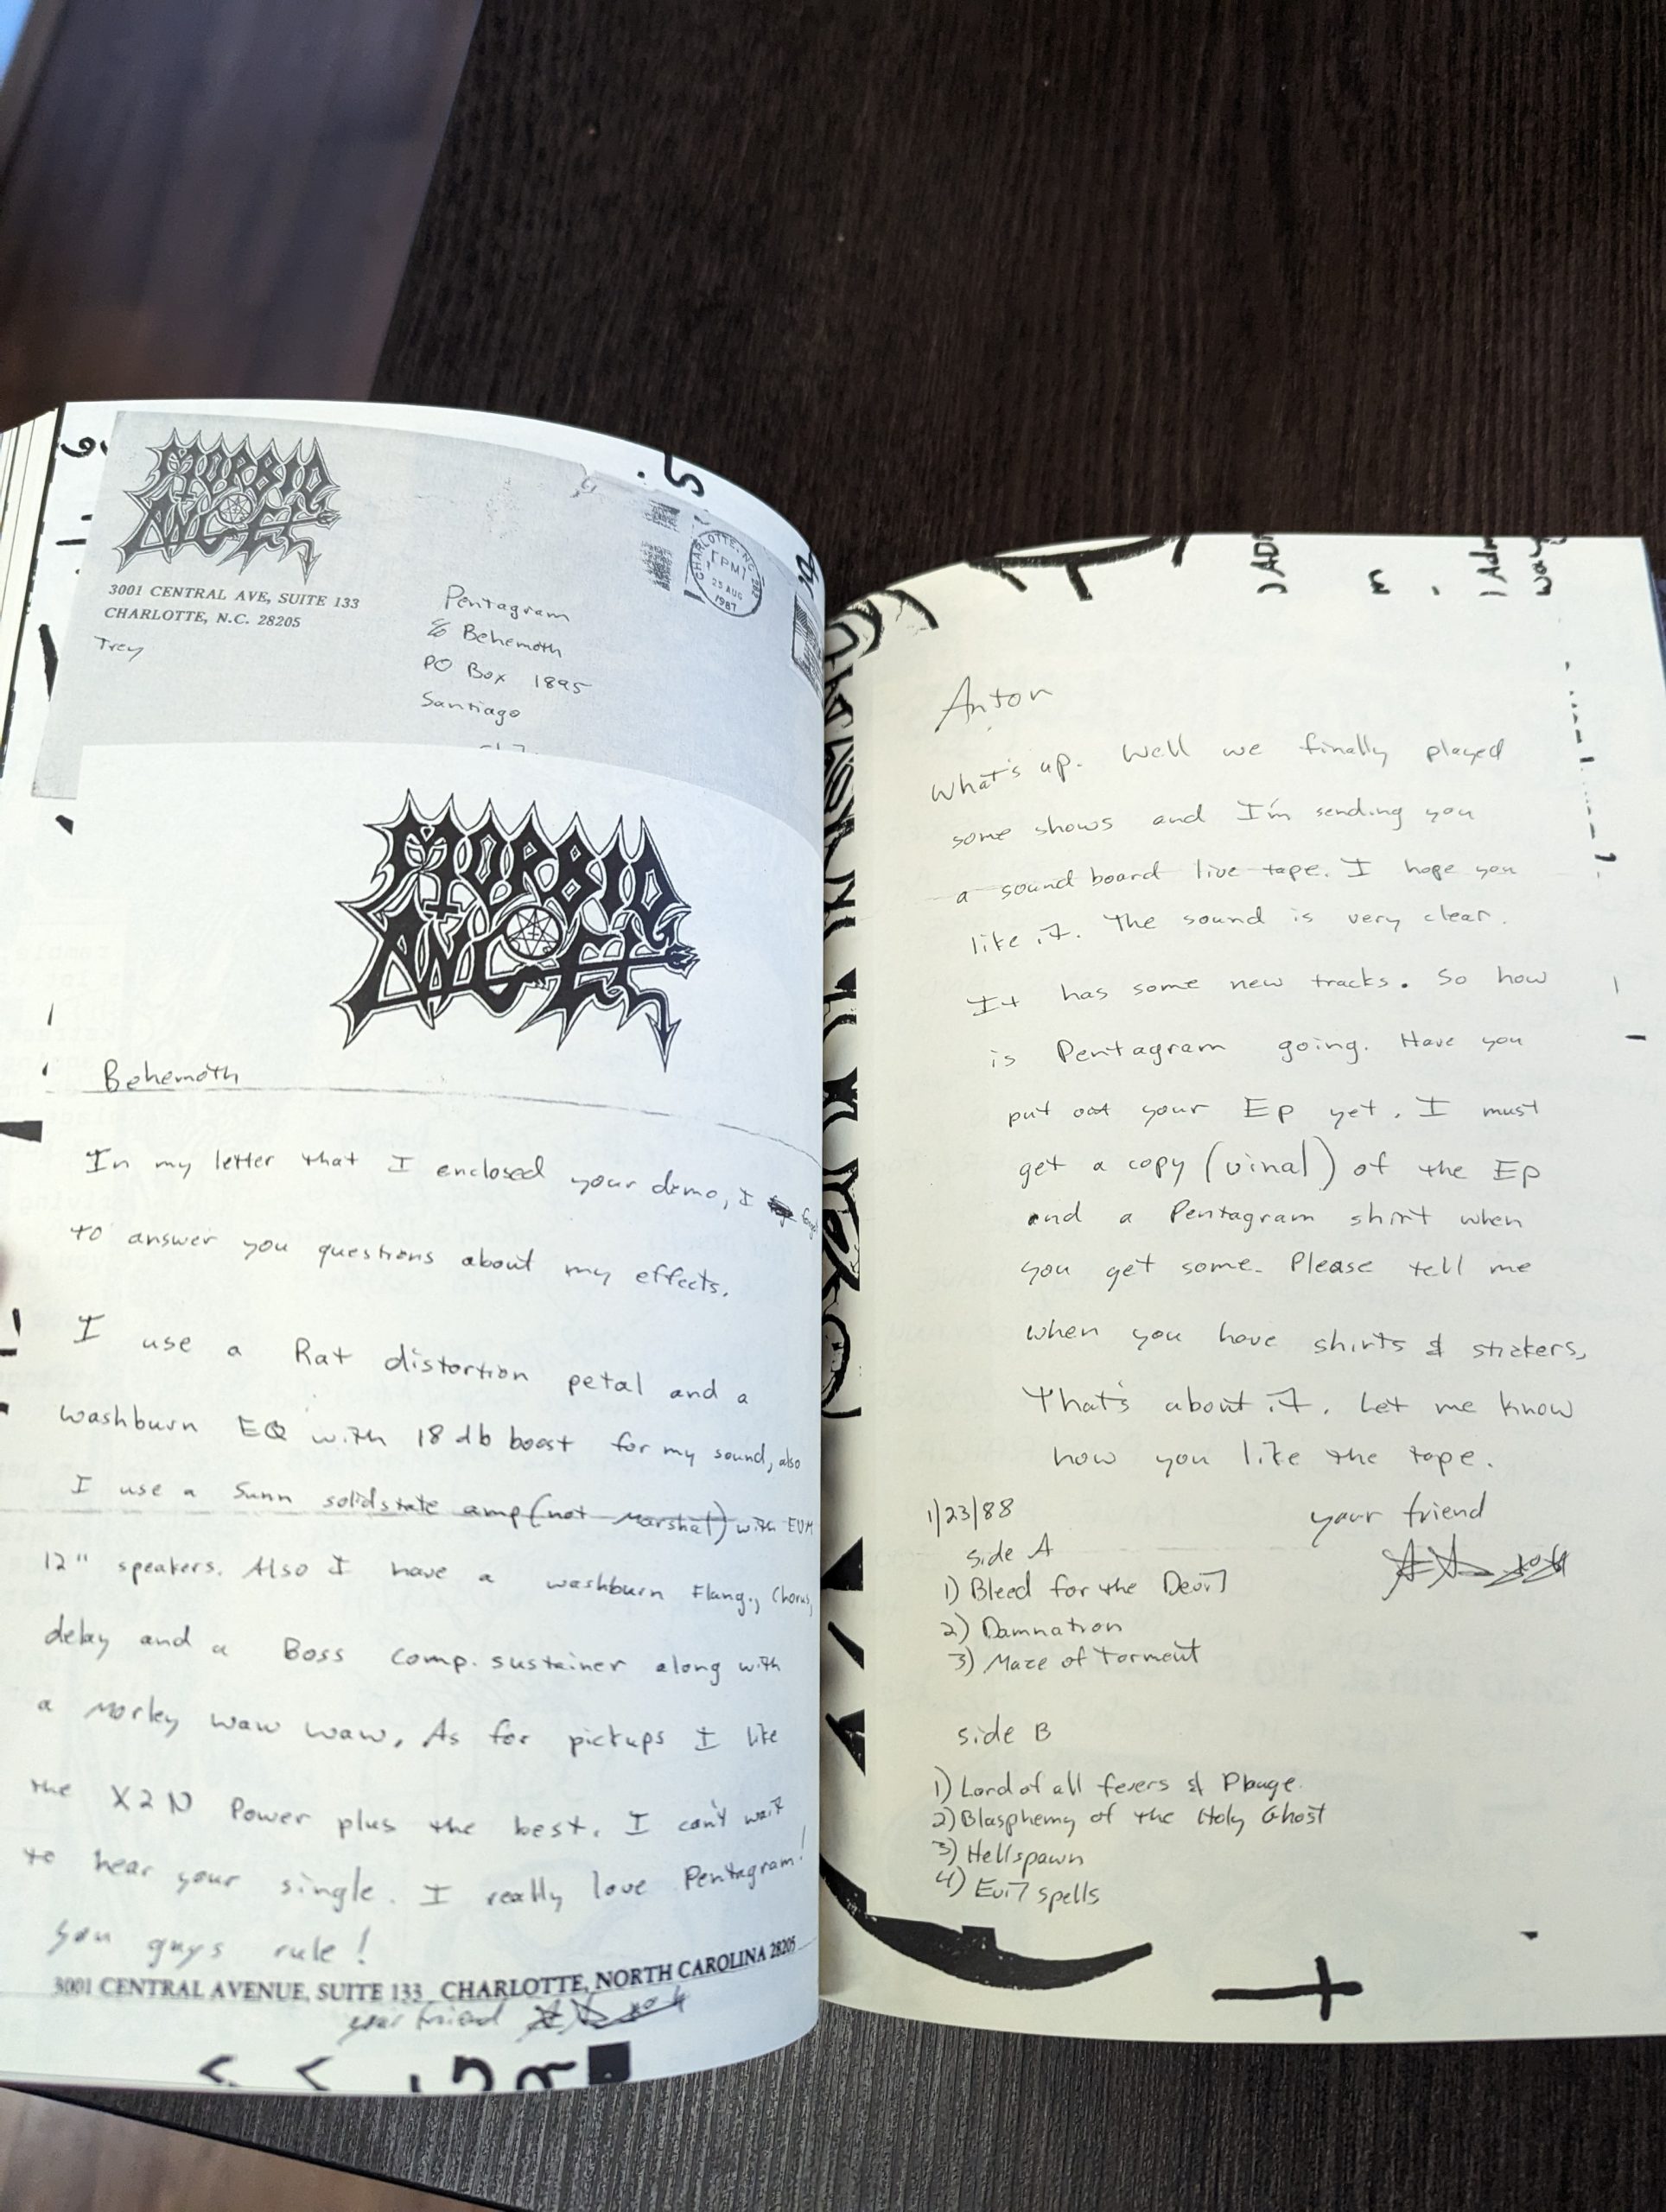 MORBID
ANGEL
3001 CENTRAL AVE, SUITE 133
CHARLOTTE, N.C. 28205
Trey
CHARLOTTE, NC 282
PM
25 AUG
1987
Pentagram
% Behemoth
PO Box 1895
Santiago
MORBID
ANGEL
Behemoth
In my letter that I enclosed your demo, I
to answer you questions about my effects.
I use a Rat distortion petal and a
washburn EQ with 18 db boost for my sound, also
I use a Sunn solidstate amp (not Marshal) with EVM
12" speakers. Also I have a washburn Flang., Chorus,
delay and a Boss comp. sustainer along with
a Morley waw waw. As for pickups I like
the X2N Power plus the best. I can't wait
to hear your single. I really love Pentagram!
you guys rule!
3001 CENTRAL AVENUE, SUITE 133 CHARLOTTE, NORTH CAROLINA 28205
your friend
Anton
What's up. Well we finally played
some shows and I'm sending you
a sound board live tape. I hope you
like it. The sound is very clear.
It has some new tracks. So how
is Pentagram going. Have you
put out your Ep yet. I must
get a copy (vinal) of the Ep
and a Pentagram shirt when
you get some. Please tell me
when you have shirts & stickers,
That's about it. Let me know
how you like the tape.
your friend
1/23/88
side A
1) Bleed for the Devil
2) Damnation
3) Maze of Torment
side B
1) Lord of all fevers & Plauge
2) Blasphemy of the Holy Ghost
3) Hellspawn
4) Evil spells